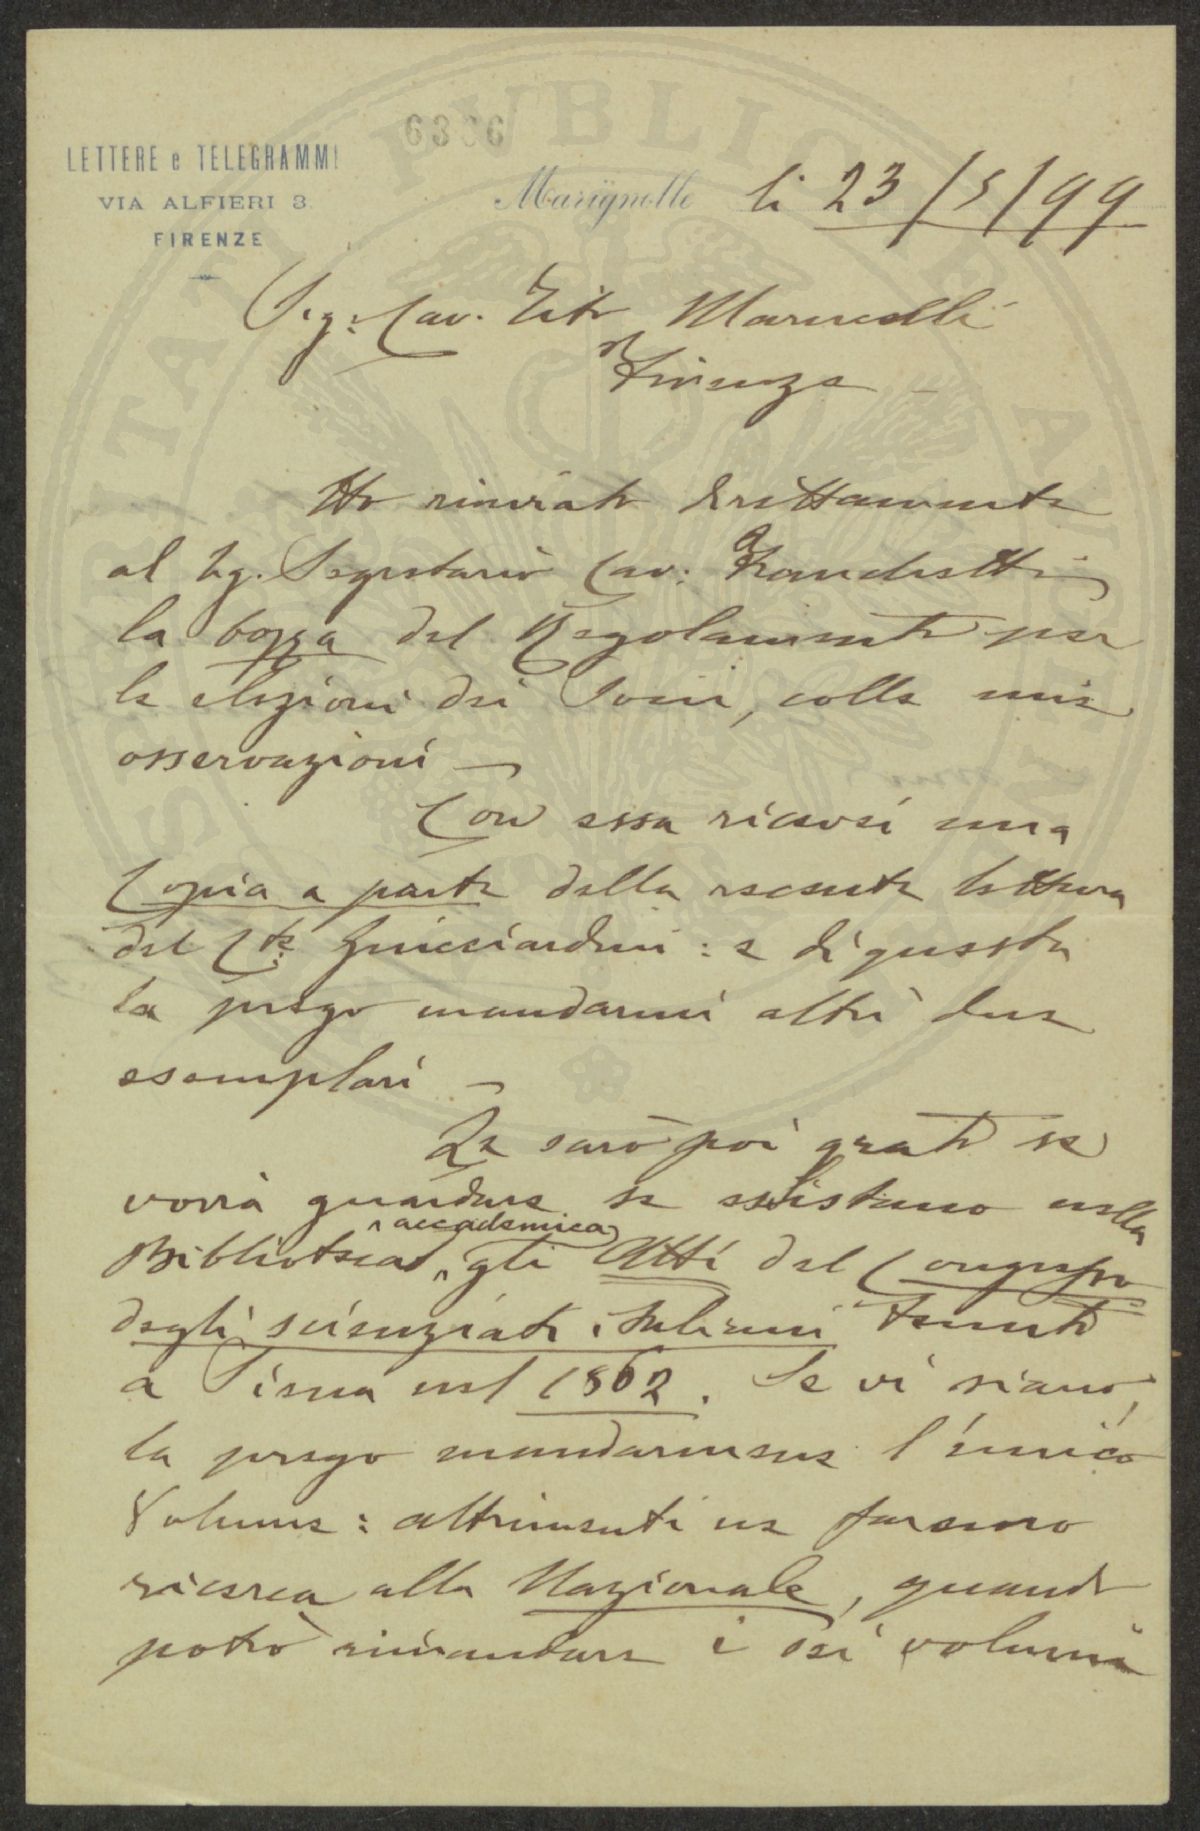 6366
LETTERE e TELEGRAMMI
VIA ALFIERI 3.
FIRENZE
Marignolle li 23/5/99
Sigr. Cav. Tito Marucelli
Firenze
Ho rinviato direttamente
al Sig. Segretario Cav. Franchetti
la bozza del Regolamento per
le elezioni dei Soci, colle mie
osservazioni —
Con essa ricevei una
Copia a parte della recente lettera
del Cte. Guicciardini: e di questa
la prego mandarmi altri due
esemplari —
Le sarò poi grato se
vorrà guardare se esistano nella
Biblioteca accademica gli Atti del Congresso
degli scienziati italiani tenuto
a Siena nel 1862. Se vi siano,
la prego mandarmene l'unico
Volume: altrimenti ne faremo
ricerca alla Nazionale, quando
potrò rimandare i sei volumi